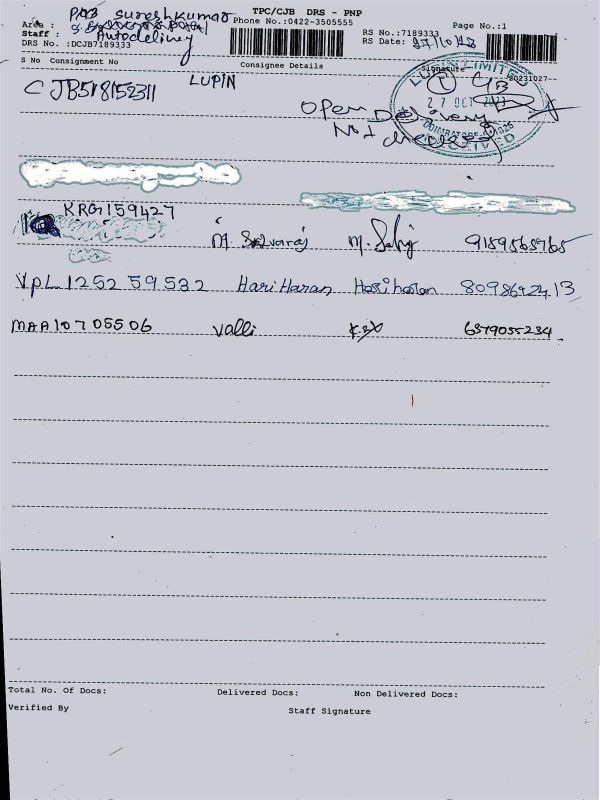 PAB Sureshkumar
TPC/CJB DRS - PNP
Area :
Phone No.:0422-3505555
Page No.:1
Staff :
Autodelivey
RS No.:7189333
DRS No. :DCJB7189333
RS Date: 27/10/23
S No Consignment No
Consignee Details
Signature
20231027
CJB518152311 LUPIN
LUPIN LIMITED
27 OCT
Open Delivery
Not checked
COIMBATORE
KRG159427
M. Selvaraj 9159565765
VPL125259532 HariHaran Hariharan 8098642413
MAA10705506 Valli 6379055234
Total No. Of Docs: Delivered Docs: Non Delivered Docs:
Verified By Staff Signature